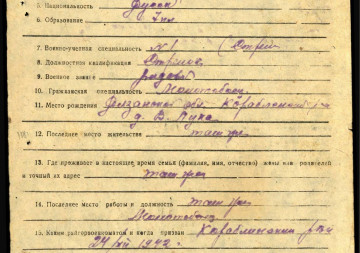 5. Национальность Русск
6. Образование 7 кл
7. Военно-учетная специальность №1 (Стрел
8. Должностная квалификация Стрелк
9. Военное звание рядов
10. Гражданская специальность
11. Место рождения Рязанской обл. Кораблинский р-н
д. В. Лука
12. Последнее место жительства там же
13. Где проживает в настоящее время семья (фамилия, имя, отчество) жены или родителей
и точный их адрес там же
14. Последнее место работы и должность там же
15. Каким райгорвоенкоматом и когда призван Кораблинским РВК
24 1942 г.